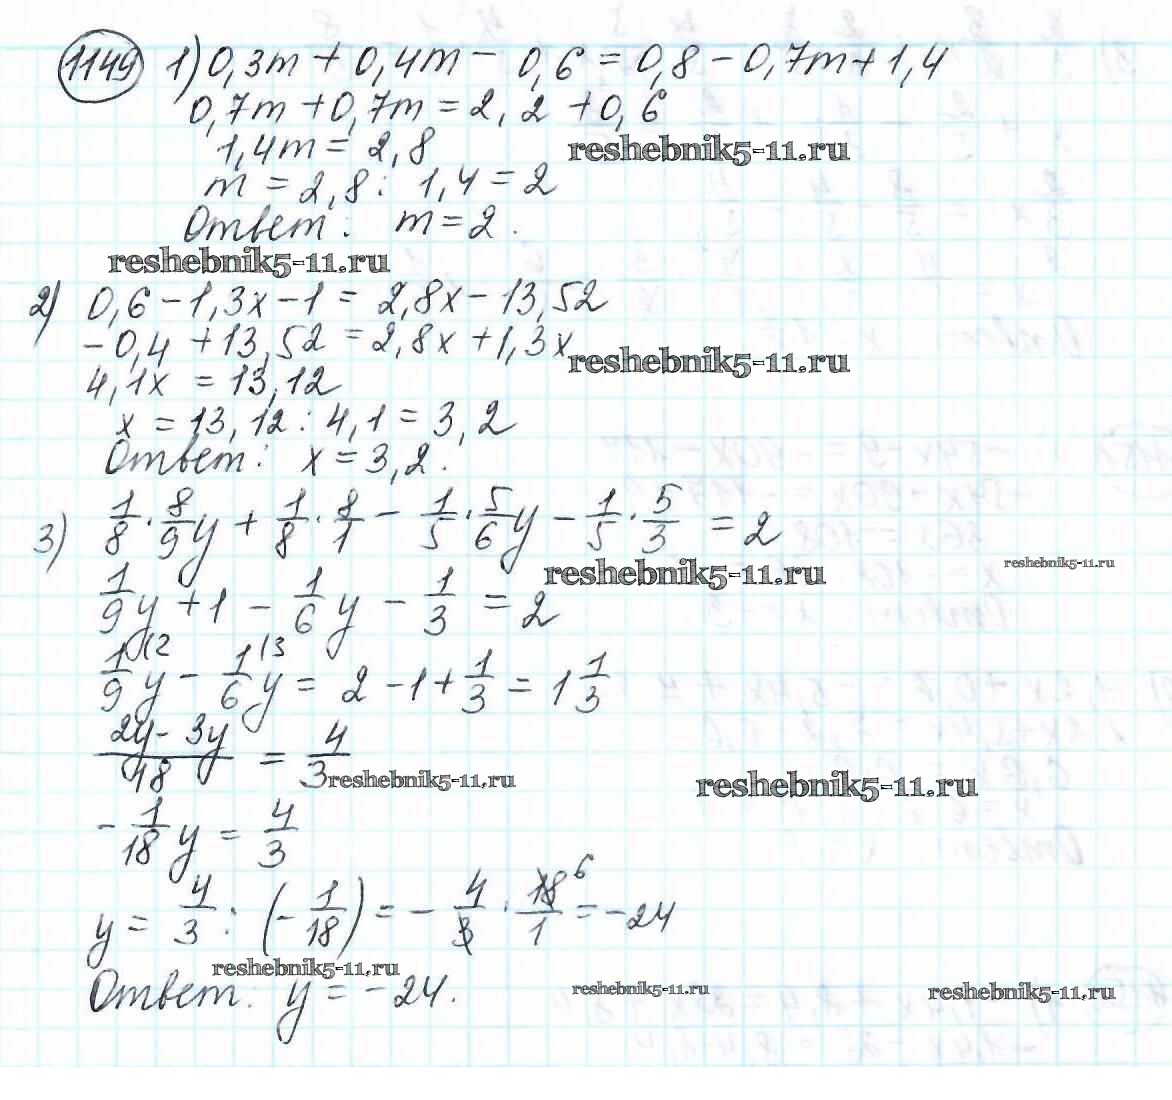 1149 1) 0,3m + 0,4m - 0,6 = 0,8 - 0,7m + 1,4
0,7m + 0,7m = 2,2 + 0,6
1,4m = 2,8
reshebnik5-11.ru
m = 2,8 : 1,4 = 2
Ответ: m = 2.
reshebnik5-11.ru
2) 0,6 - 1,3x - 1 = 2,8x - 13,52
-0,4 + 13,52 = 2,8x + 1,3x
reshebnik5-11.ru
4,1x = 13,12
x = 13,12 : 4,1 = 3,2
Ответ: x = 3,2.
3) 1/8 · 8/9 y + 1/8 · 8/1 - 1/5 · 5/6 y - 1/5 · 5/3 = 2
reshebnik5-11.ru
reshebnik5-11.ru
1/9 y + 1 - 1/6 y - 1/3 = 2
1/9 (2 y - 1/6 (3 y = 2 - 1 + 1/3 = 1 1/3
2y - 3y / 18 = 4/3
reshebnik5-11.ru
reshebnik5-11.ru
-1/18 y = 4/3
y = 4/3 : (-1/18) = -4/3 · 18 6/1 = -24
reshebnik5-11.ru
Ответ: y = -24.
reshebnik5-11.ru
reshebnik5-11.ru